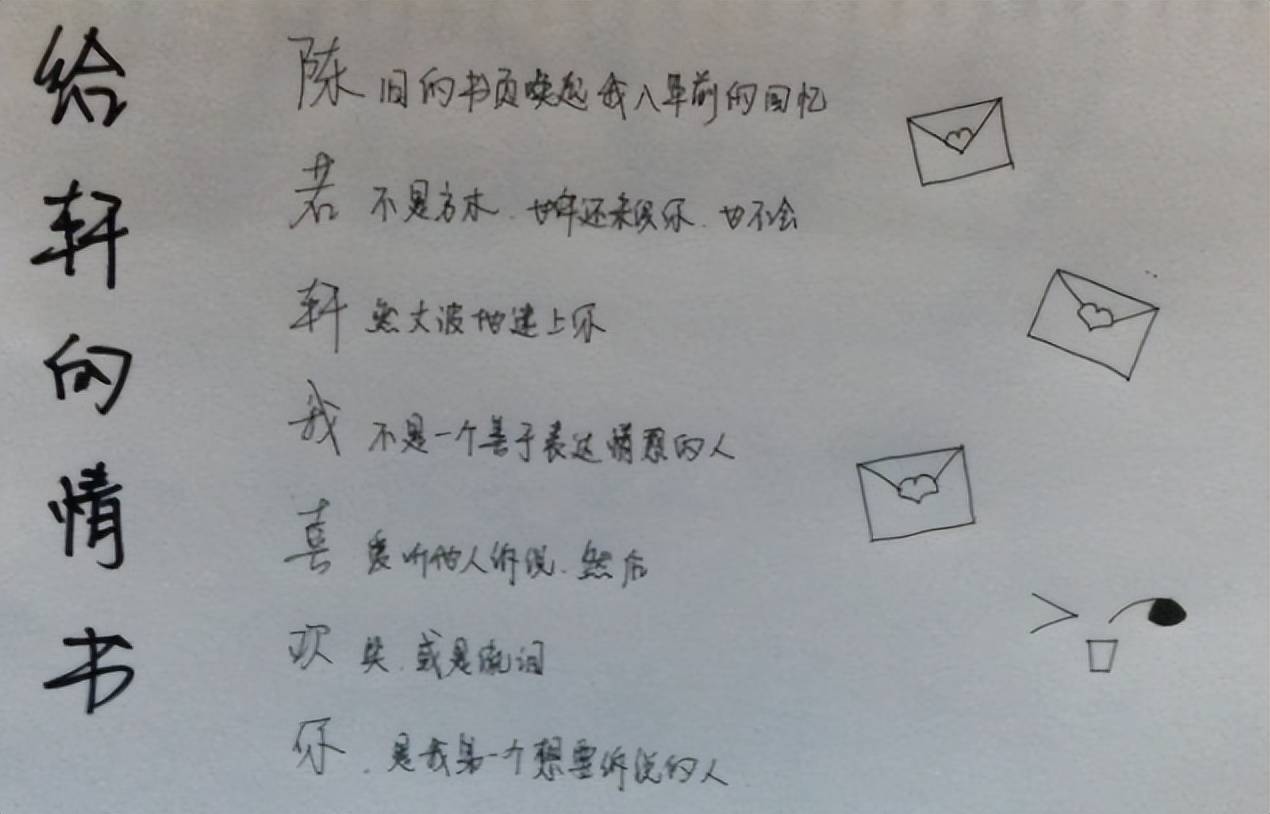 给轩的情书
陈旧的书页唤起我八年前的回忆
若不是方木、廿年还未误你、也不会
轩然大波地迷上你
我不是一个善于表达情感的人
喜爱听他人诉说、然后
欢笑、或是流泪
你、是我第一个想要诉说的人